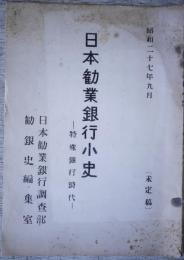 昭和二十七年九月
〔未定稿〕
日本勧業銀行小史
―特殊銀行時代―
日本勧業銀行調査部
勧銀史編集室